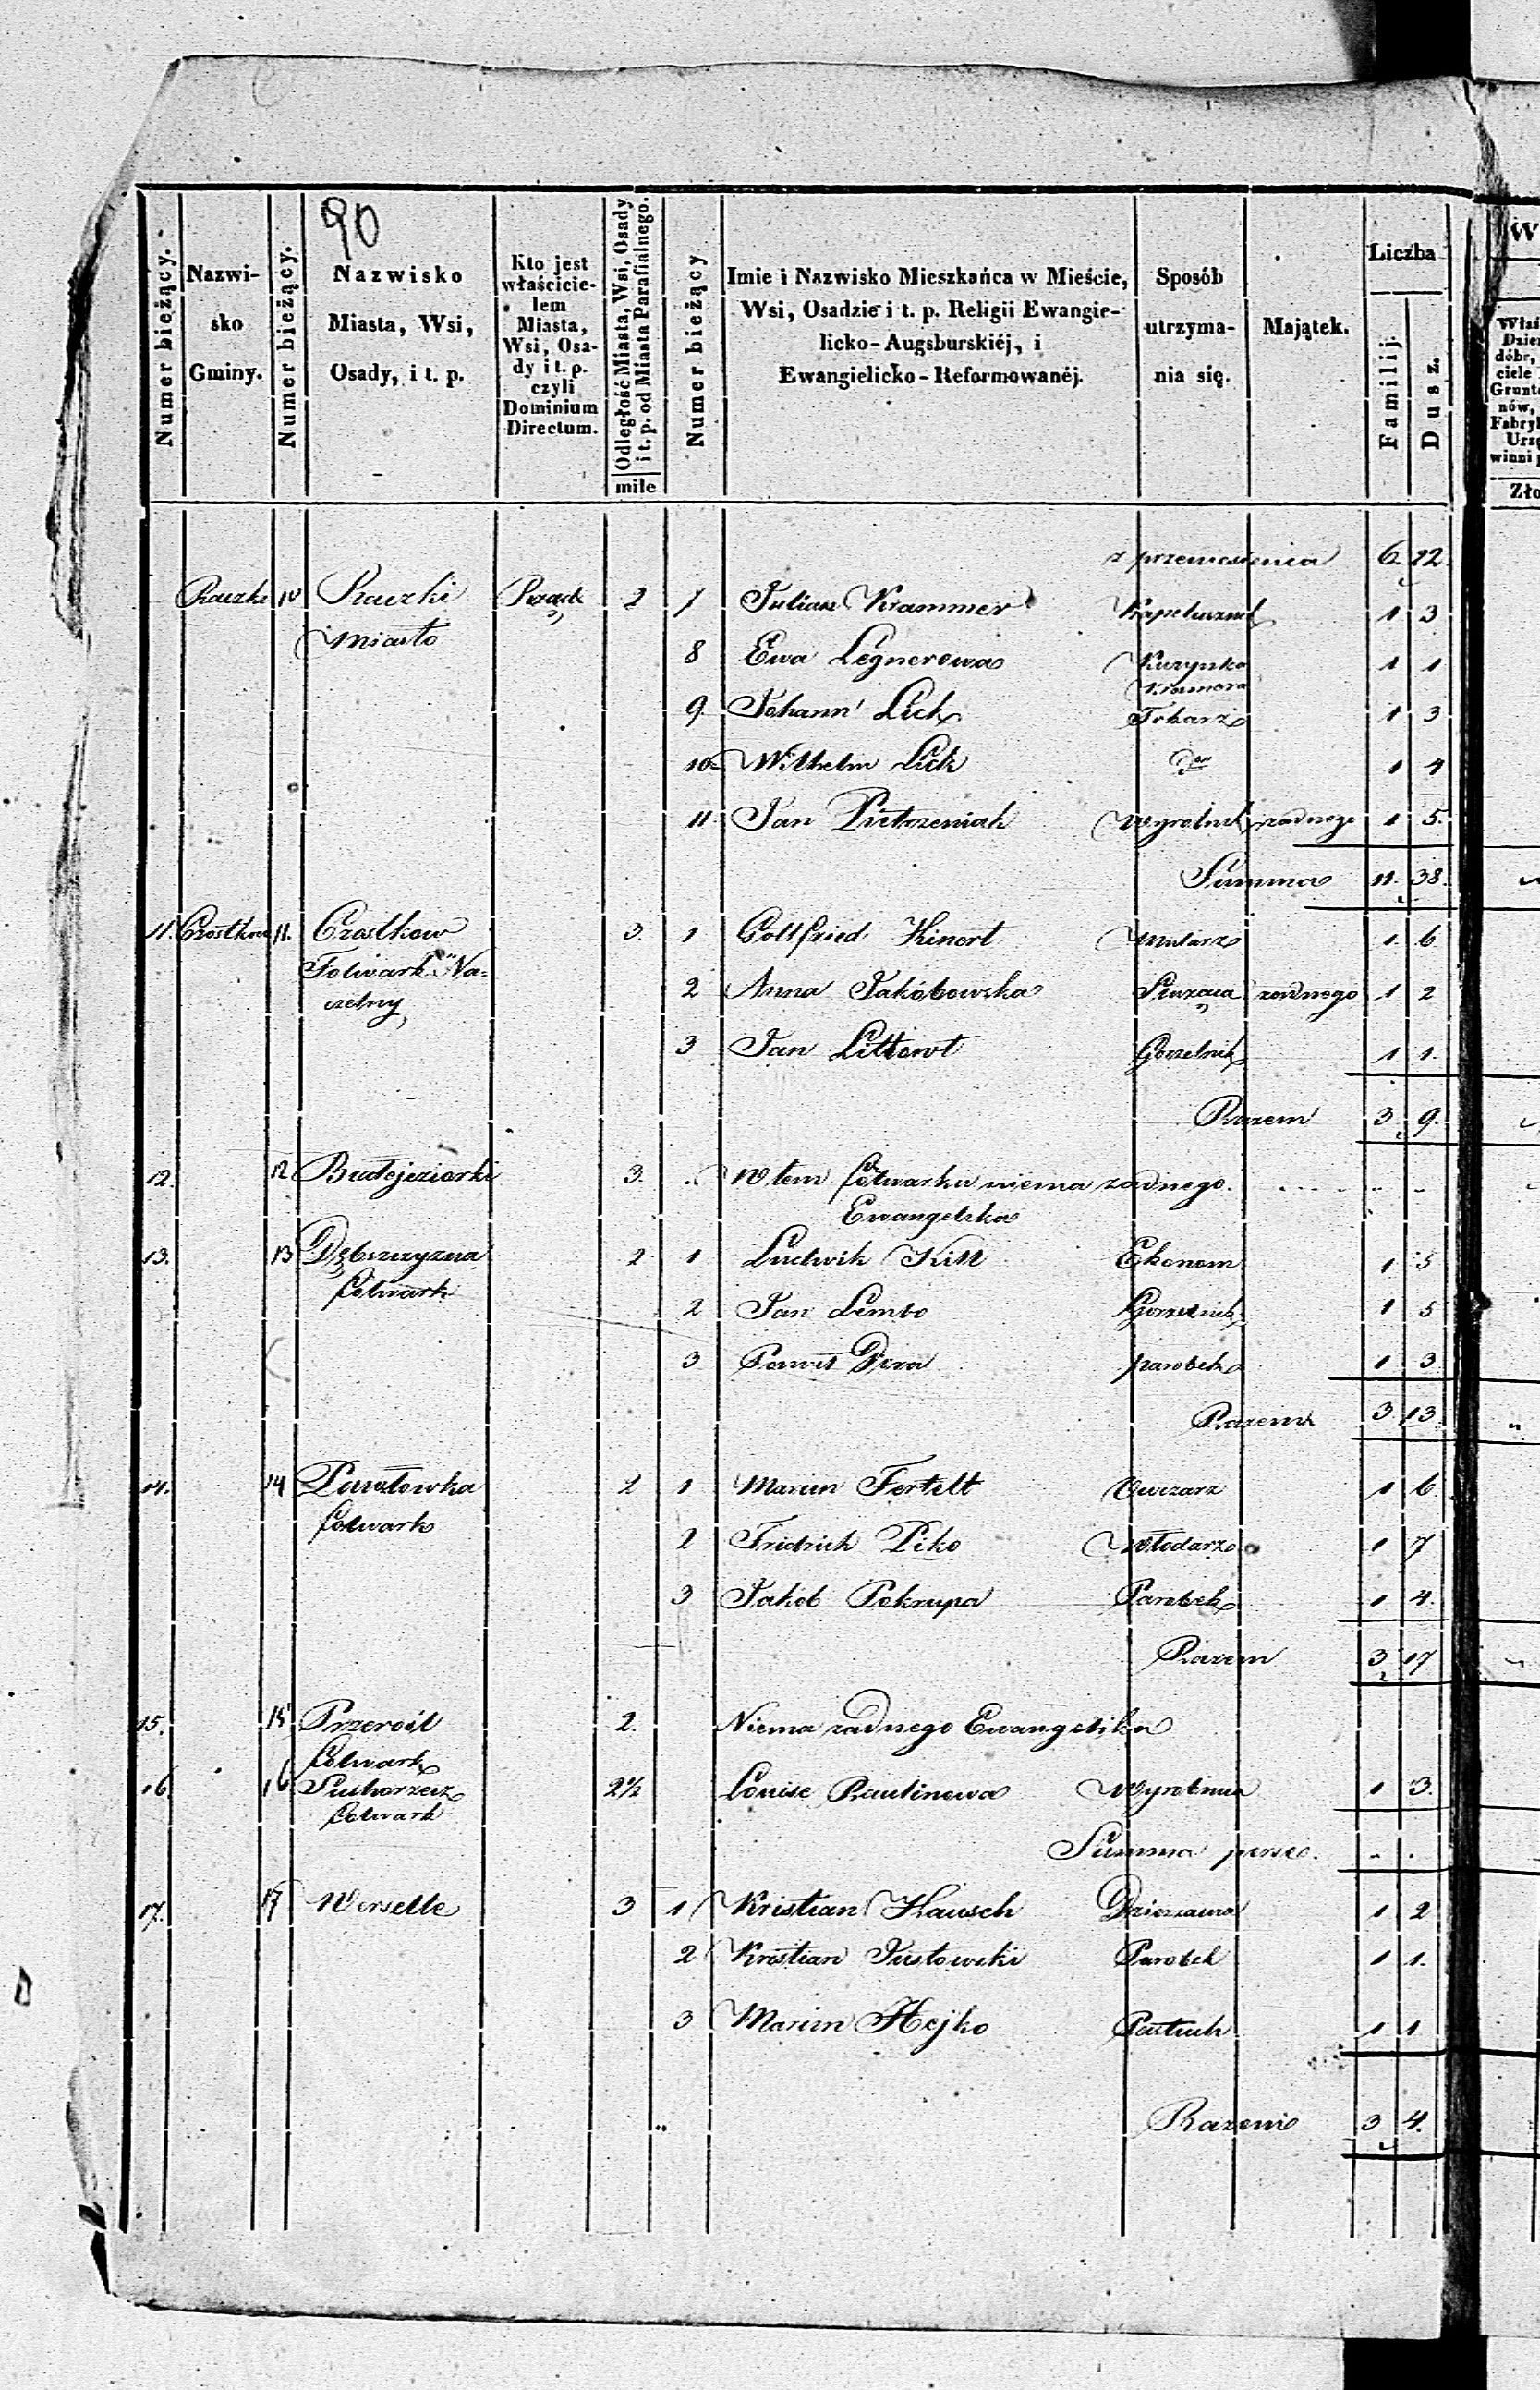 90
Numer bieżący.
Nazwi-
sko
Gminy.
Numer bieżący.
Nazwisko
Miasta, Wsi,
Osady, i t. p.
Kto jest
właścicie-
lem
Miasta,
Wsi, Osa-
dy i t. p.
czyli
Dominium
Directum.
Odległość Miasta, Wsi, Osady
i t. p. od Miasta Parafialnego.
mile
Numer bieżący
Imie i Nazwisko Mieszkańca w Mieście,
Wsi, Osadzie i t. p. Religii Ewangie-
licko-Augsburskiéj, i
Ewangielicko-Reformowanéj.
Sposób
utrzyma-
nia się.
Majątek.
Liczba
Familij.
Dusz.
z przeniesienia 6. 22
Raczki 10 Raczki Rząd 2 7 Julian Krammer Kapelusznik 1 3
miasto
8 Ewa Legnerowa Kuzynka 1 1
Kramera
9 Johann Lick Tokarz 1 3
10 Wilhelm Lick 1 4
11 Jan Pietrzeniak wyrobnik żadnego 1 5.
Summa 11. 38.
11. Czostkow 11. Czostkow 3. 1 Gottfried Kinert Mularz 1. 6
Folwark Na-
czelny
2 Anna Jakóbowska Służąca żadnego 1 2
3 Jan Littowt Gorzelnik 1 1.
Razem 3 9.
12. 12 Białejeziorki 3. W tem folwarku niema żadnego.
Ewangelika
13. 13 Dębszczyzna 2 1 Ludwik Kill Ekonom 1 5
folwark
2 Jan Lembo Gorzelnik 1 5
3 Paweł Dera parobek 1 3
Razem 3 13
14. 14 Pawłowka 2 1 Marcin Fertelt Owczarz 1 6
folwark
2 Fridrich Piko Włodarz 1 7
3 Jakob Pokrupa Parobek 1 4.
Razem 3 17
15. 15 Przerośl 2. Niema żadnego Ewangelika
folwark
16 16 Suchorzecz 2½ Louise Raulinowa Wyrobnica 1 3.
folwark
Summa perse.
17. 17 Werselle 3 1 Kristian Hausch Dzierzawca 1 2
2 Kristian Justowski Parobek 1 1.
3 Marcin Hejko Pastuch 1 1
Razem 3 4.
W
Właś
Dzier
dóbr,
ciele
Grunt
nów,
Fabryk
Urzę
winni
Zło